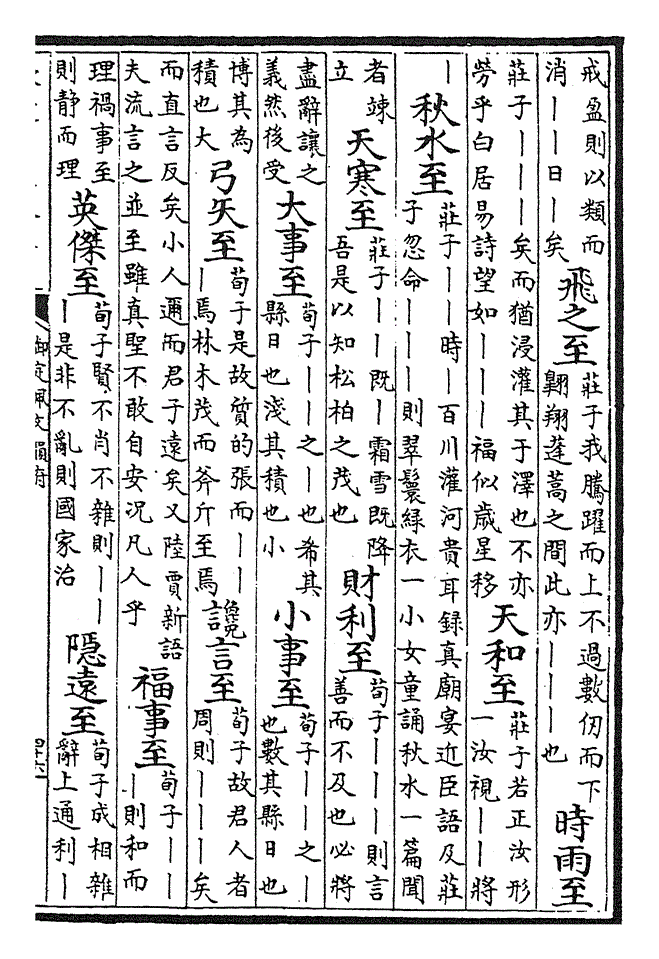 戒盈則以類而消丨丨日丨矣飛之至莊子我騰躍而上不過數仞而下翺翔蓬蒿之間此亦丨丨丨也時雨至
莊子丨丨丨矣而猶浸灌其于澤也不亦勞乎白居易詩望如丨丨丨福似歲星移天和至莊子若正汝形一汝視丨丨將
丨秋水至莊子丨丨時丨百川灌河貴耳録真廟宴近臣語及莊子忽命丨丨丨則翠鬟緑衣一小女童誦秋水一篇聞
者竦立天寒至莊子丨丨既丨霜雪既降吾是以知松柏之茂也財利至荀子丨丨丨則言善而不及也必將
盡辭讓之義然後受大事至荀子丨丨之丨也希其縣日也淺其積也小小事至荀子丨丨之丨也數其縣日也
博其為積也大弓矢至荀子是故質的張而丨丨丨焉林木茂而斧斤至焉讒言至荀子故君人者周則丨丨丨矣
而直言反矣小人邇而君子遠矣又陸賈新語夫流言之並至雖真聖不敢自安况凡人乎福事至荀子丨丨丨則和而
理禍事至則静而理英傑至荀子賢不肖不雜則丨丨丨是非不亂則國家治隠遠至荀子成相雜辭上通利丨
御定佩文韻府